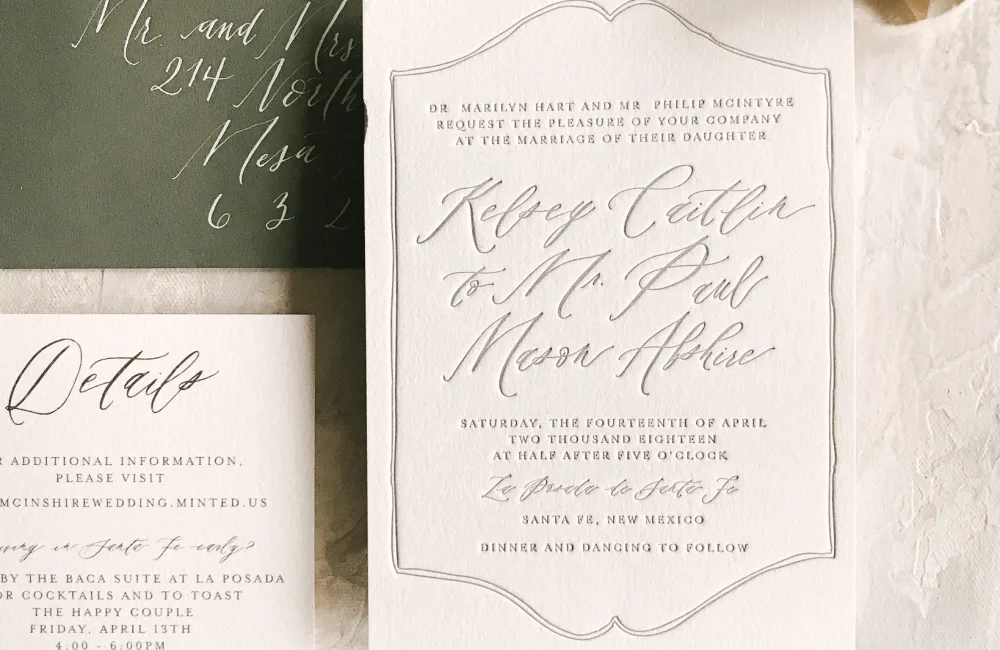 Mr. and Mrs
214 North
Mesa
6 3 2
DR MARILYN HART AND MR PHILIP MCINTYRE
REQUEST THE PLEASURE OF YOUR COMPANY
AT THE MARRIAGE OF THEIR DAUGHTER
Kelsey Caitlin
to Mr. Paul
Mason Abshire
SATURDAY, THE FOURTEENTH OF APRIL
TWO THOUSAND EIGHTEEN
AT HALF AFTER FIVE O'CLOCK
La Posada de Santa Fe
SANTA FE, NEW MEXICO
DINNER AND DANCING TO FOLLOW
Details
R ADDITIONAL INFORMATION,
PLEASE VISIT
MCINSHIREWEDDING.MINTED.US
in Santa Fe early?
BY THE BACA SUITE AT LA POSADA
OR COCKTAILS AND TO TOAST
THE HAPPY COUPLE
FRIDAY, APRIL 13TH
4:00 - 6:00PM